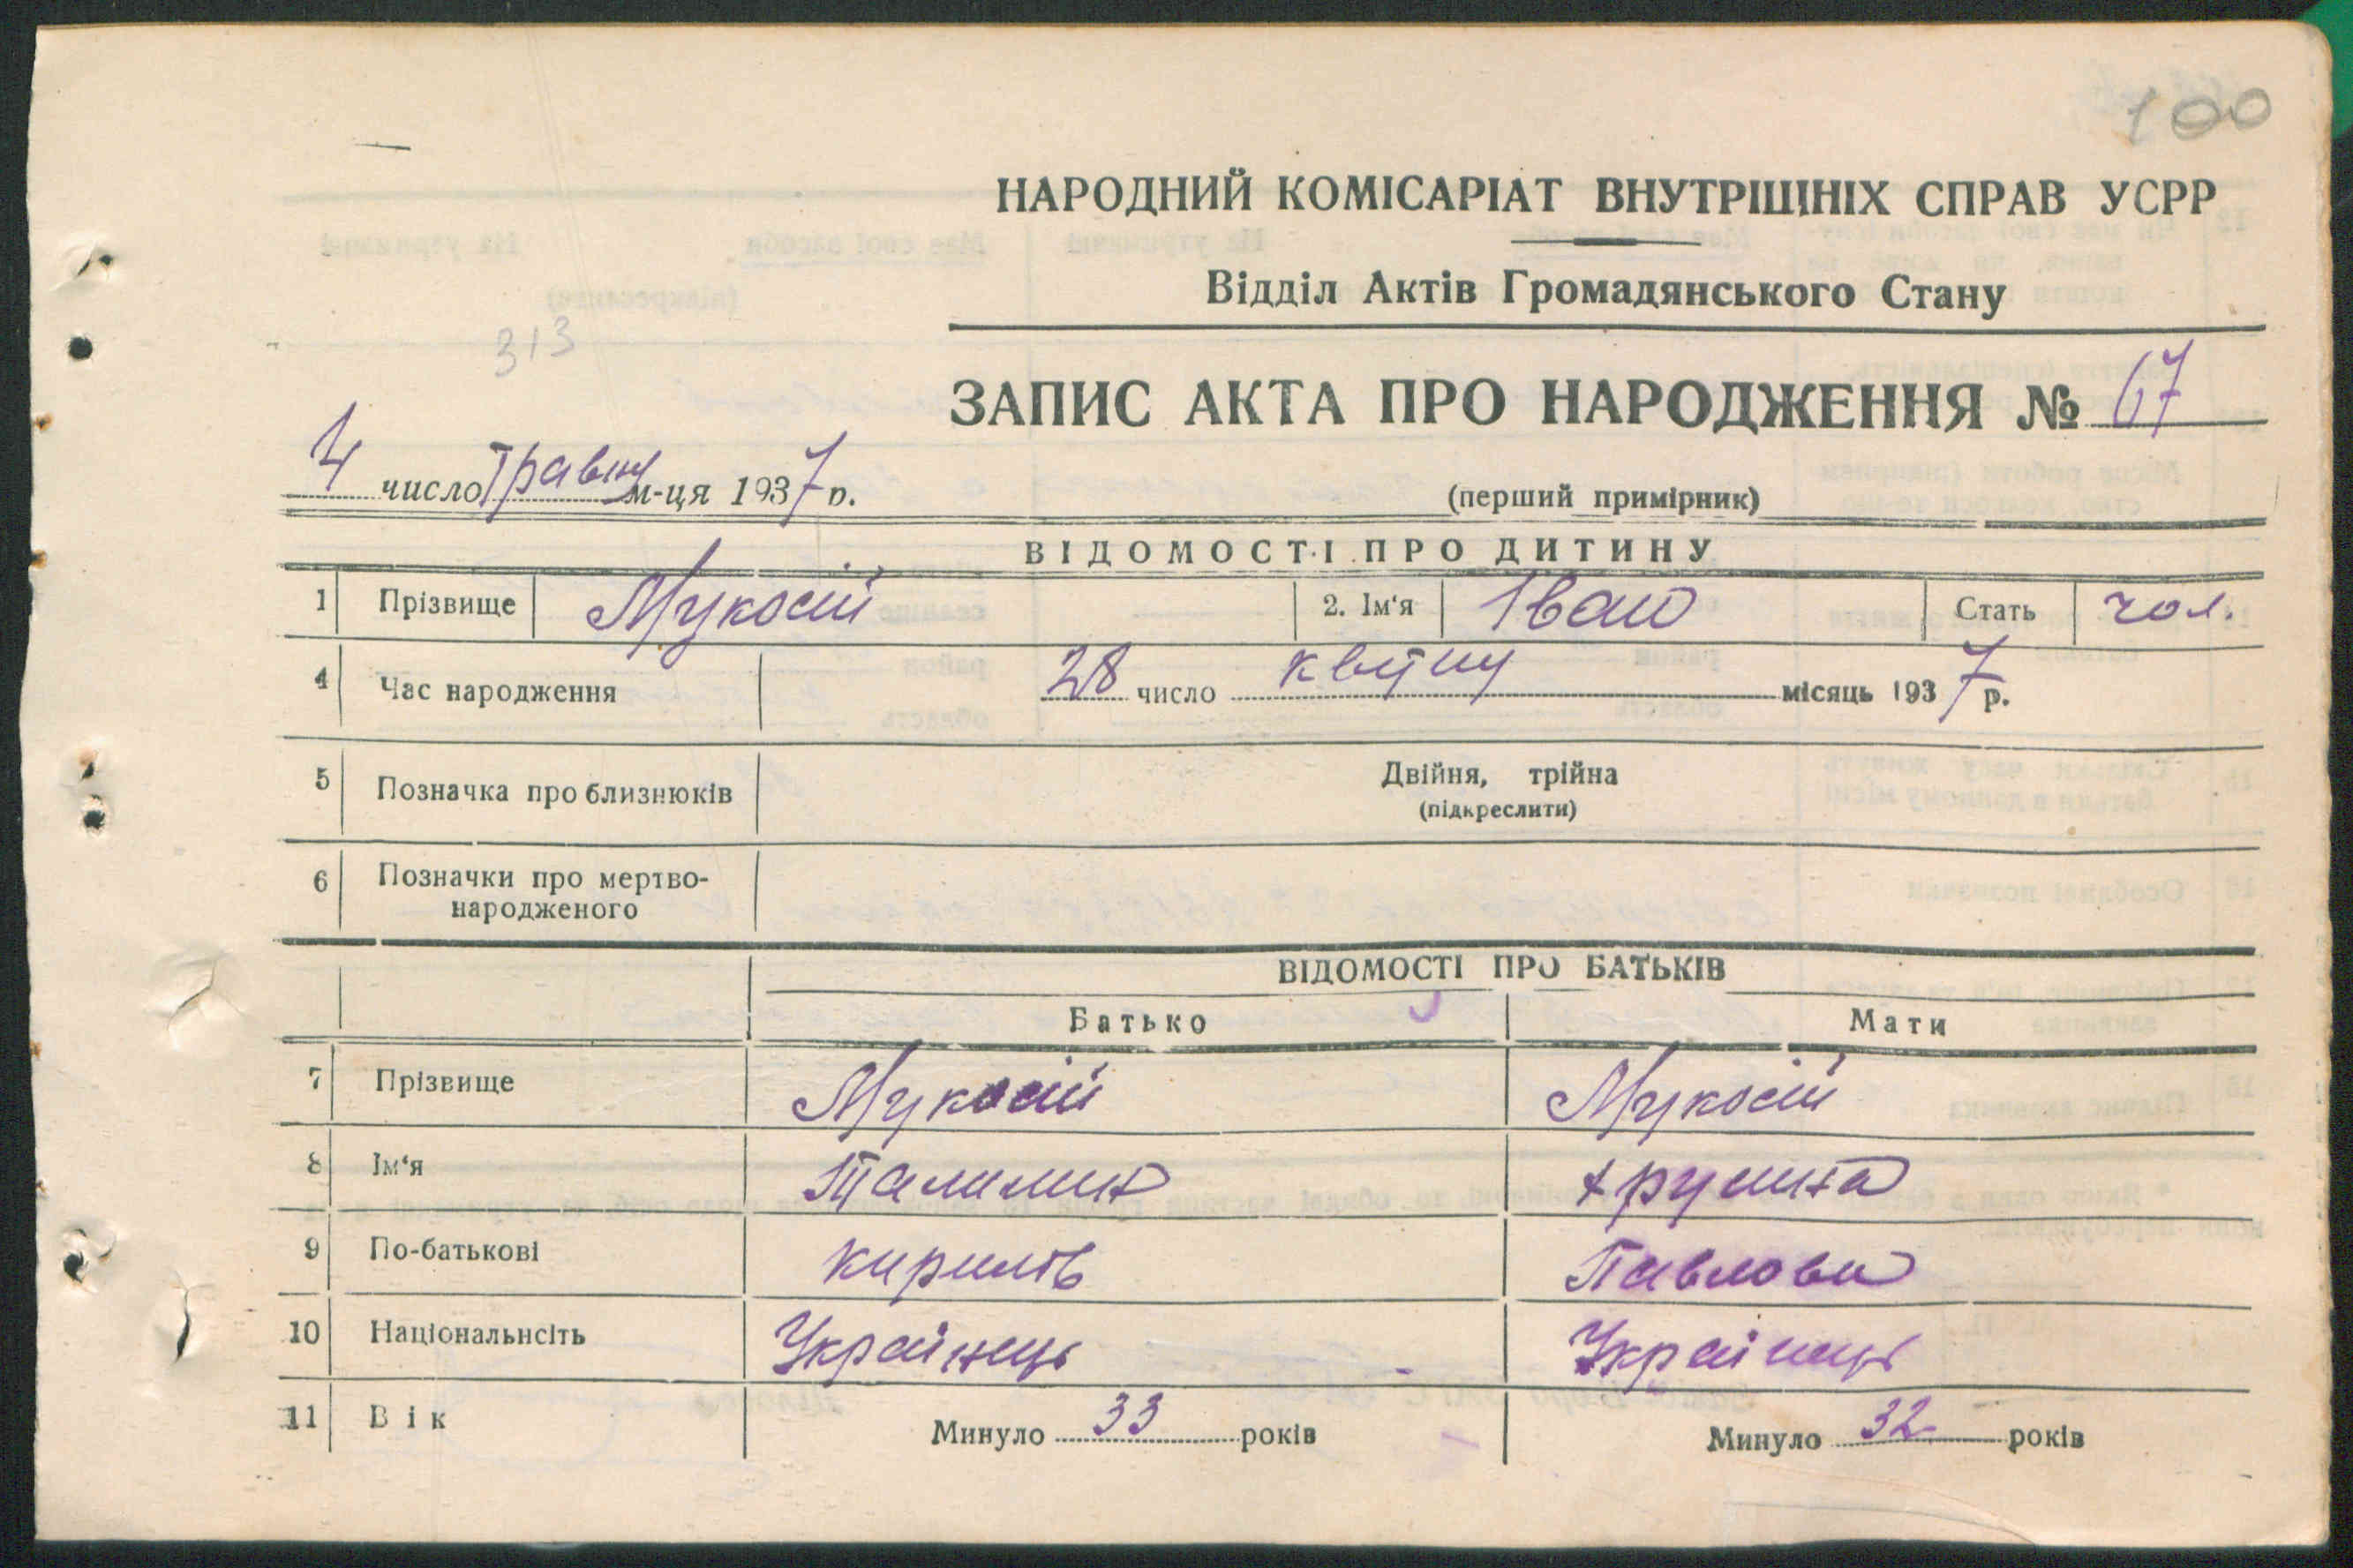 100
НАРОДНИЙ КОМІСАРІАТ ВНУТРІШНІХ СПРАВ УСРР
Відділ Актів Громадянського Стану
313
ЗАПИС АКТА ПРО НАРОДЖЕННЯ № 67
4 число травня м-ця 1937 р.
(перший примірник)
ВІДОМОСТІ ПРО ДИТИНУ
1 Прізвище Мукосій 2. Ім‘я Іван Стать чол.
4 Час народження 28 число квітня місяць 1937 р.
5 Позначка про близнюків Двійня, трійна
(підкреслити)
6 Позначки про мертво-
народженого
ВІДОМОСТІ ПРО БАТЬКІВ
Батько Мати
7 Прізвище Мукосій Мукосій
8 Ім‘я
9 По-батькові Кирилів Павлова
10 Національнсіть Українець Українець
11 Вік Минуло 33 років Минуло 32 років